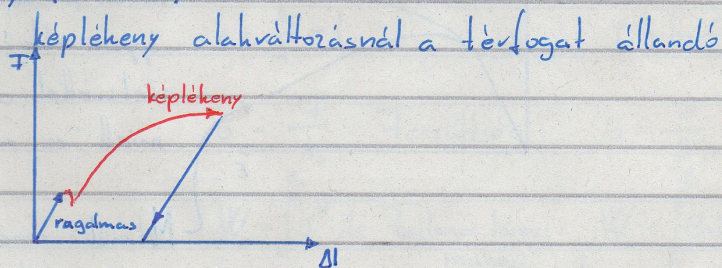 képlékeny alakváltozásnál a térfogat állandó
F
képlékeny
ragalmas
Δl